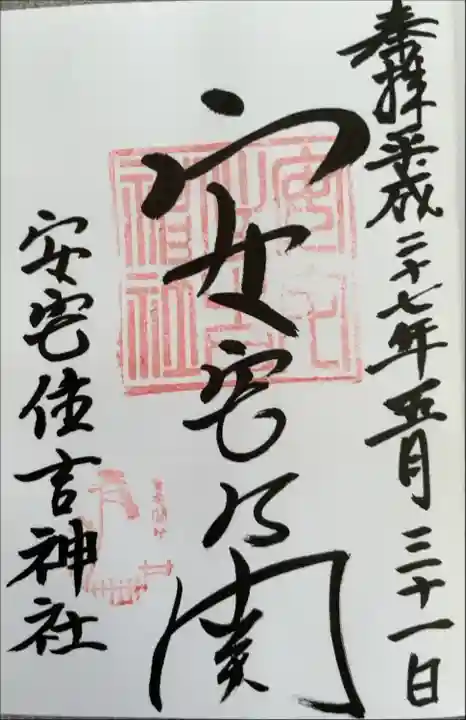 奉拝 平成二十七年五月三十一日
安宅乃関
安宅住吉神社